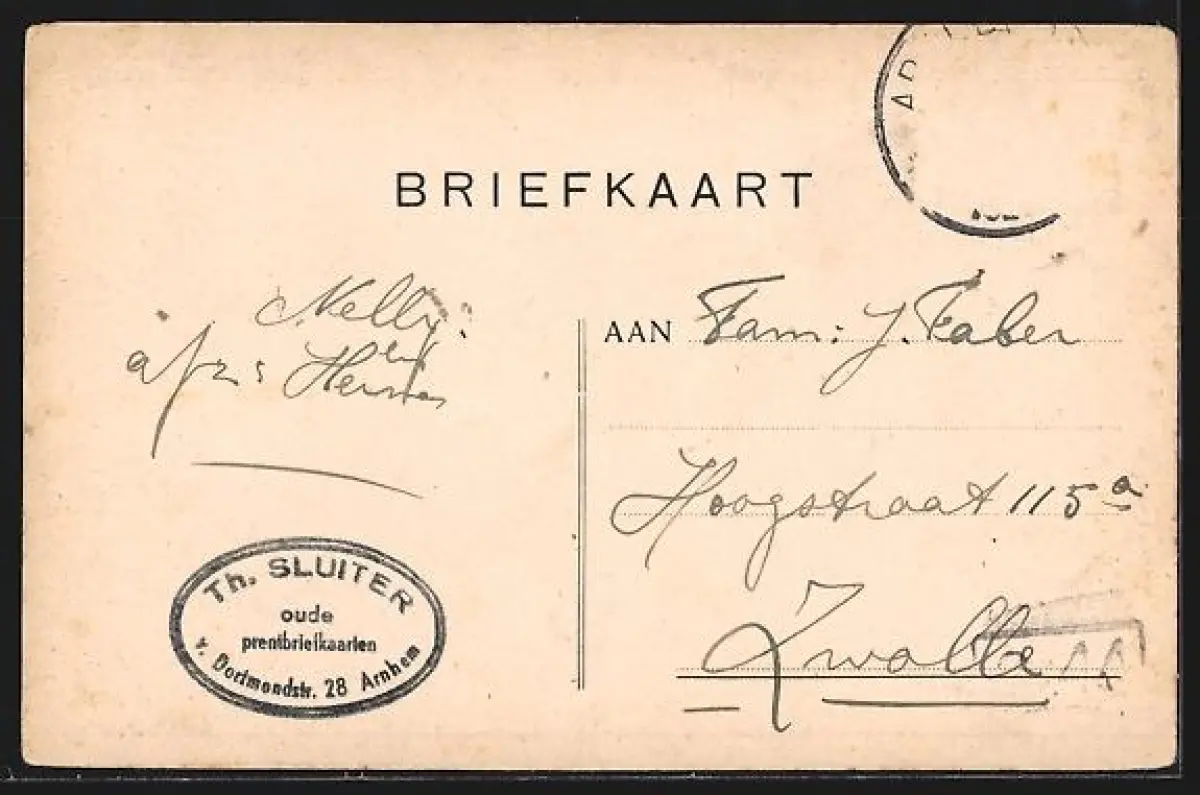 BRIEFKAART
Nelly
en
afz: Herman
AAN Fam: J. Faber
Hoogstraat 115a
Zwolle
Th. SLUITER
oude
prentbriefkaarten
v. Dortmondstr. 28 Arnhem